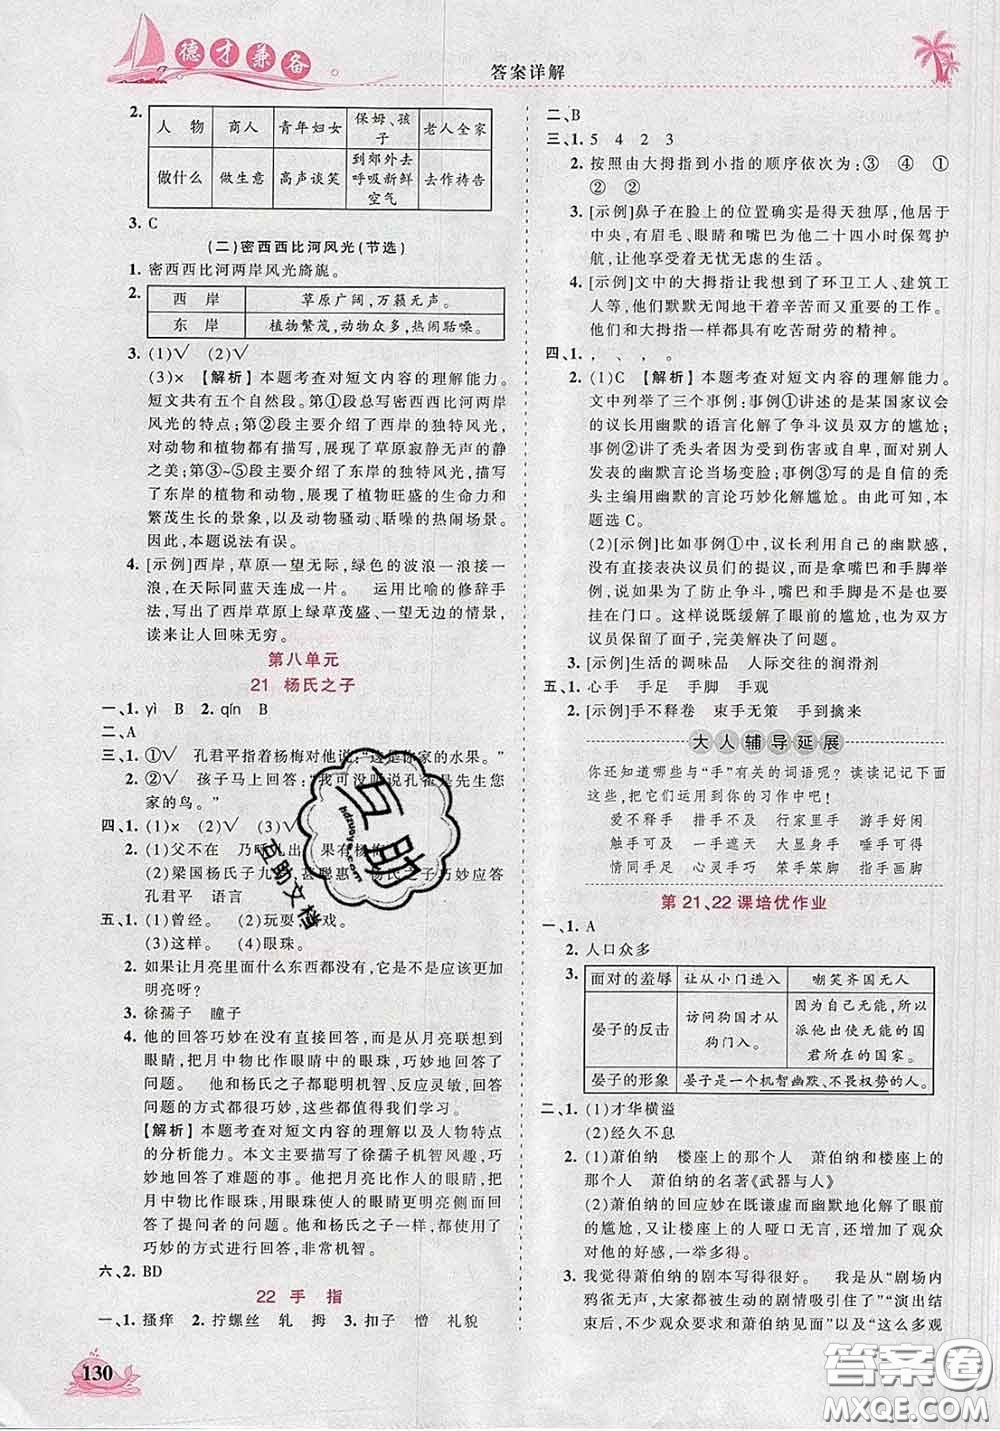 德才兼备
答案详解
2.
人 物 商人 青年妇女 保姆、孩子 老人全家
做什么 做生意 高声谈笑 到郊外去呼吸新鲜空气 去作祷告
3. C
(二)密西西比河风光(节选)
1. 密西西比河两岸风光旖旎。
2.
西 岸 草原广阔,万籁无声。
东 岸 植物繁茂,动物众多,热闹聒噪。
3. (1)√ (2)√
(3)× 【解析】本题考查对短文内容的理解能力。
短文共有五个自然段。第①段总写密西西比河两岸风光的特点;第②段主要介绍了西岸的独特风光,
对动物和植物都有描写,展现了草原寂静无声的静之美;第③~⑤段主要介绍了东岸的独特风光,描写
了东岸的植物和动物,展现了植物旺盛的生命力和
繁茂生长的景象,以及动物骚动、聒噪的热闹场景。
因此,本题说法有误。
4. [示例]西岸,草原一望无际,绿色的波浪一浪接一
浪,在天际同蓝天连成一片。 运用比喻的修辞手
法,写出了西岸草原上绿草茂盛、一望无边的情景,
读来让人回味无穷。
第八单元
21 杨氏之子
一、1. yì B 2. qín B
二、A
三、1. ①√ 孔君平指着杨梅对他说:“这是你家的水果。”
2. ②√ 孩子马上回答:“我可没听说孔雀是先生您
家的鸟。”
四、1. (1)× (2)√ (3)√
2. (1)父不在 乃呼儿出 果有杨梅
(2)梁国杨氏子九岁,甚聪惠 杨氏子巧妙应答
孔君平 语言
五、1. (1)曾经。 (2)玩耍,游戏。
(3)这样。 (4)眼珠。
2. 如果让月亮里面什么东西都没有,它是不是应该更加
明亮呀?
3. 徐孺子 瞳子
4. 他的回答巧妙在没有直接回答,而是从月亮联想到
眼睛,把月中物比作眼睛中的眼珠,巧妙地回答了
问题。 他和杨氏之子都聪明机智、反应灵敏,回答
问题的方式都很巧妙,都值得我们学习。
【解析】本题考查对短文内容的理解以及人物特点
的分析能力。本文主要写了徐孺子机智风趣,巧
妙地回答了难题的事。他把月亮比作人的眼睛,把
月中物比作眼珠,用眼珠使人的眼睛更明亮巧妙回
答了提问者的问题。他和杨氏之子一样,都使用了
巧妙的方式进行回答,非常机智。
六、2. BD
22 手 指
一、1. 搔痒 2. 拧螺丝 轧 拇 3. 扣子 憎 礼貌
二、B
三、1. 5 4 2 3
2. 按照由大拇指到小指的顺序依次为:③ ④ ①
② ②
3. [示例]鼻子在脸上的位置确实是得天独厚,他居于
中央,有眉毛、眼睛和嘴巴为他二十四小时保驾护
航,让他享受着无忧无虑的生活。
4. [示例]文中的大拇指让我想到了环卫工人、建筑工
人等,他们默默无闻地干着辛苦而又重要的工作。
他们和大拇指一样都具有吃苦耐劳的精神。
四、1. , 、 , 。
2. (1)C 【解析】本题考查对短文内容的理解能力。
文中列举了三个事例:事例①讲述的是某国家议会
的议长用幽默的语言化解了争斗议员双方的尴尬;
事例②讲述了秃头者因为受到伤害或自卑,面对别人
发表的幽默言论当场变脸;事例③写的是自信的秃
头主编用幽默的言论巧妙化解尴尬。由此可知,本
题选C。
(2)[示例]比如事例①中,议长利用自己的幽默感,
没有直接表决议员们的提议,而是拿嘴巴和手脚作
比较,说如果为了防止争斗,嘴巴和手脚是应该包
括在门口。这样说既缓解了眼前的尴尬,也为双方
议员保留了面子,完美解决了问题。
3. [示例]生活的调味品 人际交往的润滑剂
五、1. 心手 手足 手脚 手观
2. [示例]手不释卷 束手无策 手到擒来
大人辅导延展
你还知道哪些与“手”有关的词语呢?读读记记下面
这些,把它们运用到你的习作中吧!
爱不释手 措手不及 行家里手 游手好闲
触手可及 一手遮天 大显身手 唾手可得
情同手足 心灵手巧 笨手笨脚 指手画脚
第21、22课培优作业
一、1. A
2. 人口众多
3.
面对的羞辱 让从小门进入 嘲笑齐国无人
晏子的反击 访问狗国才从狗门入 因为自己无能,所以派他出使无能的国君所在的国家。
晏子的形象 晏子是一个机智幽默、不畏权势的人。
二、1. (1)才华横溢
(2)经久不息
2. (1)萧伯纳 楼座上的那个人 萧伯纳和楼座上的那
个人 萧伯纳的名著《武器与人》
(2)萧伯纳的回应妙在既谦虚而幽默地化解了眼前
的尴尬,又让楼座上的人哑口无言,还增加了观众
对他的好感,一举多得。
3. 我觉得萧伯纳的剧本写得很好。 我是从“剧场内
鸦雀无声,大家都被生动的剧情吸引住了”“演出结
束后,不少观众要求和萧伯纳见面”以及“这么多观
130
互助
hdzuoye.com
互助文档
答案卷
MXQE.COM